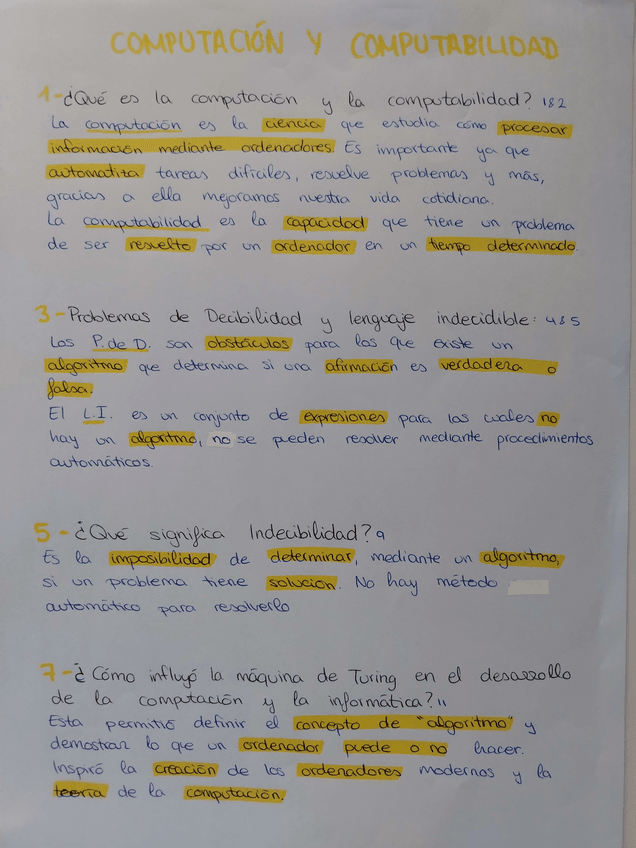 COMPUTACIÓN Y COMPUTABILIDAD
1-¿Qué es la computación y la computabilidad? 1&2
La computación es la ciencia que estudia cómo procesar
información mediante ordenadores. Es importante ya que
automatiza tareas difíciles, resuelve problemas y más,
gracias a ella mejoramos nuestra vida cotidiana.
La computabilidad es la capacidad que tiene un problema
de ser resuelto por un ordenador en un tiempo determinado.
3-Problemas de Decibilidad y lenguaje indecidible: 4&5
Los P. de D. son obstáculos para los que existe un
algoritmo que determina si una afirmación es verdadera o
falsa.
El L.I. es un conjunto de expresiones para las cuales no
hay un algoritmo, no se pueden resolver mediante procedimientos
automáticos.
5-¿Qué significa Indecibilidad? 9
Es la imposibilidad de determinar, mediante un algoritmo,
si un problema tiene solución. No hay método
automático para resolverlo
7-¿Cómo influyó la máquina de Turing en el desarrollo
de la computación y la informática? 11
Esta permitió definir el concepto de "algoritmo" y
demostrar lo que un ordenador puede o no hacer.
Inspiró la creación de los ordenadores modernos y la
teoría de la computación.